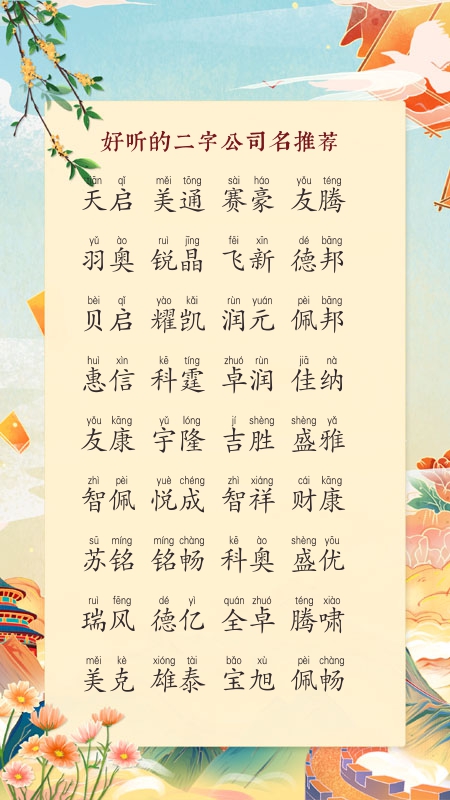 好听的二字公司名推荐
tiān qǐ měi tōng sài háo yǒu téng
天启 美通 赛豪 友腾
yǔ ào ruì jīng fēi xīn dé bāng
羽奥 锐晶 飞新 德邦
bèi qǐ yào kǎi rùn yuán pèi bāng
贝启 耀凯 润元 佩邦
huì xìn kē tíng zhuó rùn jiā nà
惠信 科霆 卓润 佳纳
yǒu kāng yǔ lóng jí shèng shèng yǎ
友康 宇隆 吉胜 盛雅
zhì pèi yuè chéng zhì xiáng cái kāng
智佩 悦成 智祥 财康
sū míng míng chàng kē ào shèng yōu
苏铭 铭畅 科奥 盛优
ruì fēng dé yì quán zhuó téng xiào
瑞风 德亿 全卓 腾啸
měi kè xióng tài bǎo xù pèi chàng
美克 雄泰 宝旭 佩畅